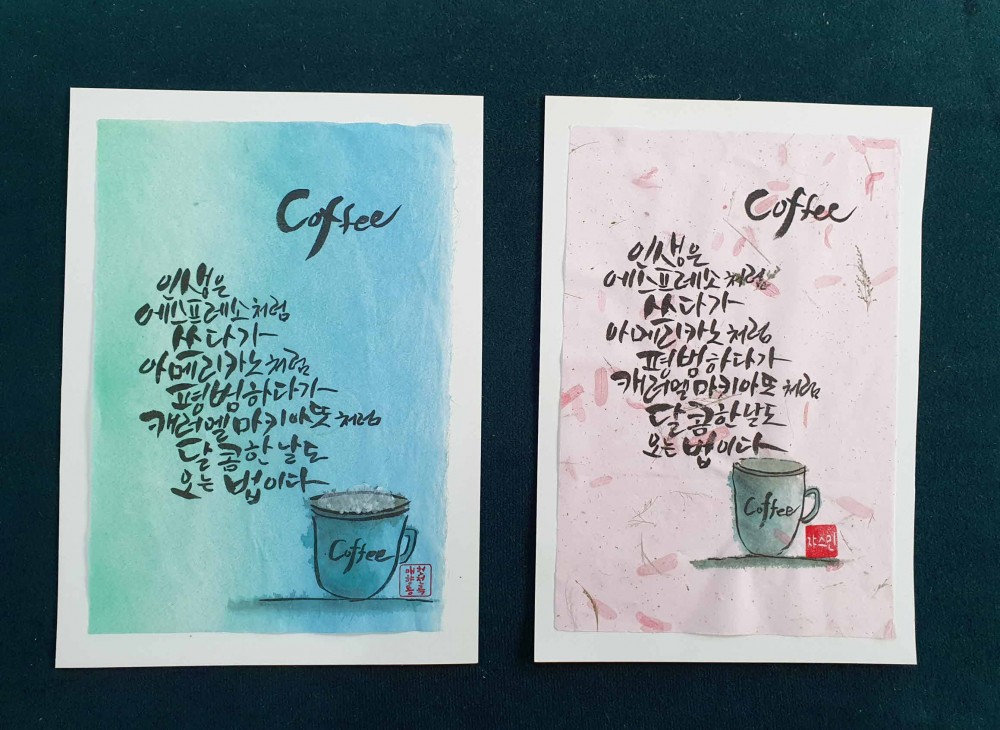 Coffee
인생은
에스프레소처럼
쓰다가
아메리카노처럼
평범하다가
캐러멜마키아또처럼
달콤한날도
오는 법이다
Coffee
Coffee
인생은
에스프레소처럼
쓰다가
아메리카노처럼
평범하다가
캐러멜마키아또처럼
달콤한날도
오는 법이다
Coffee
쟈스민